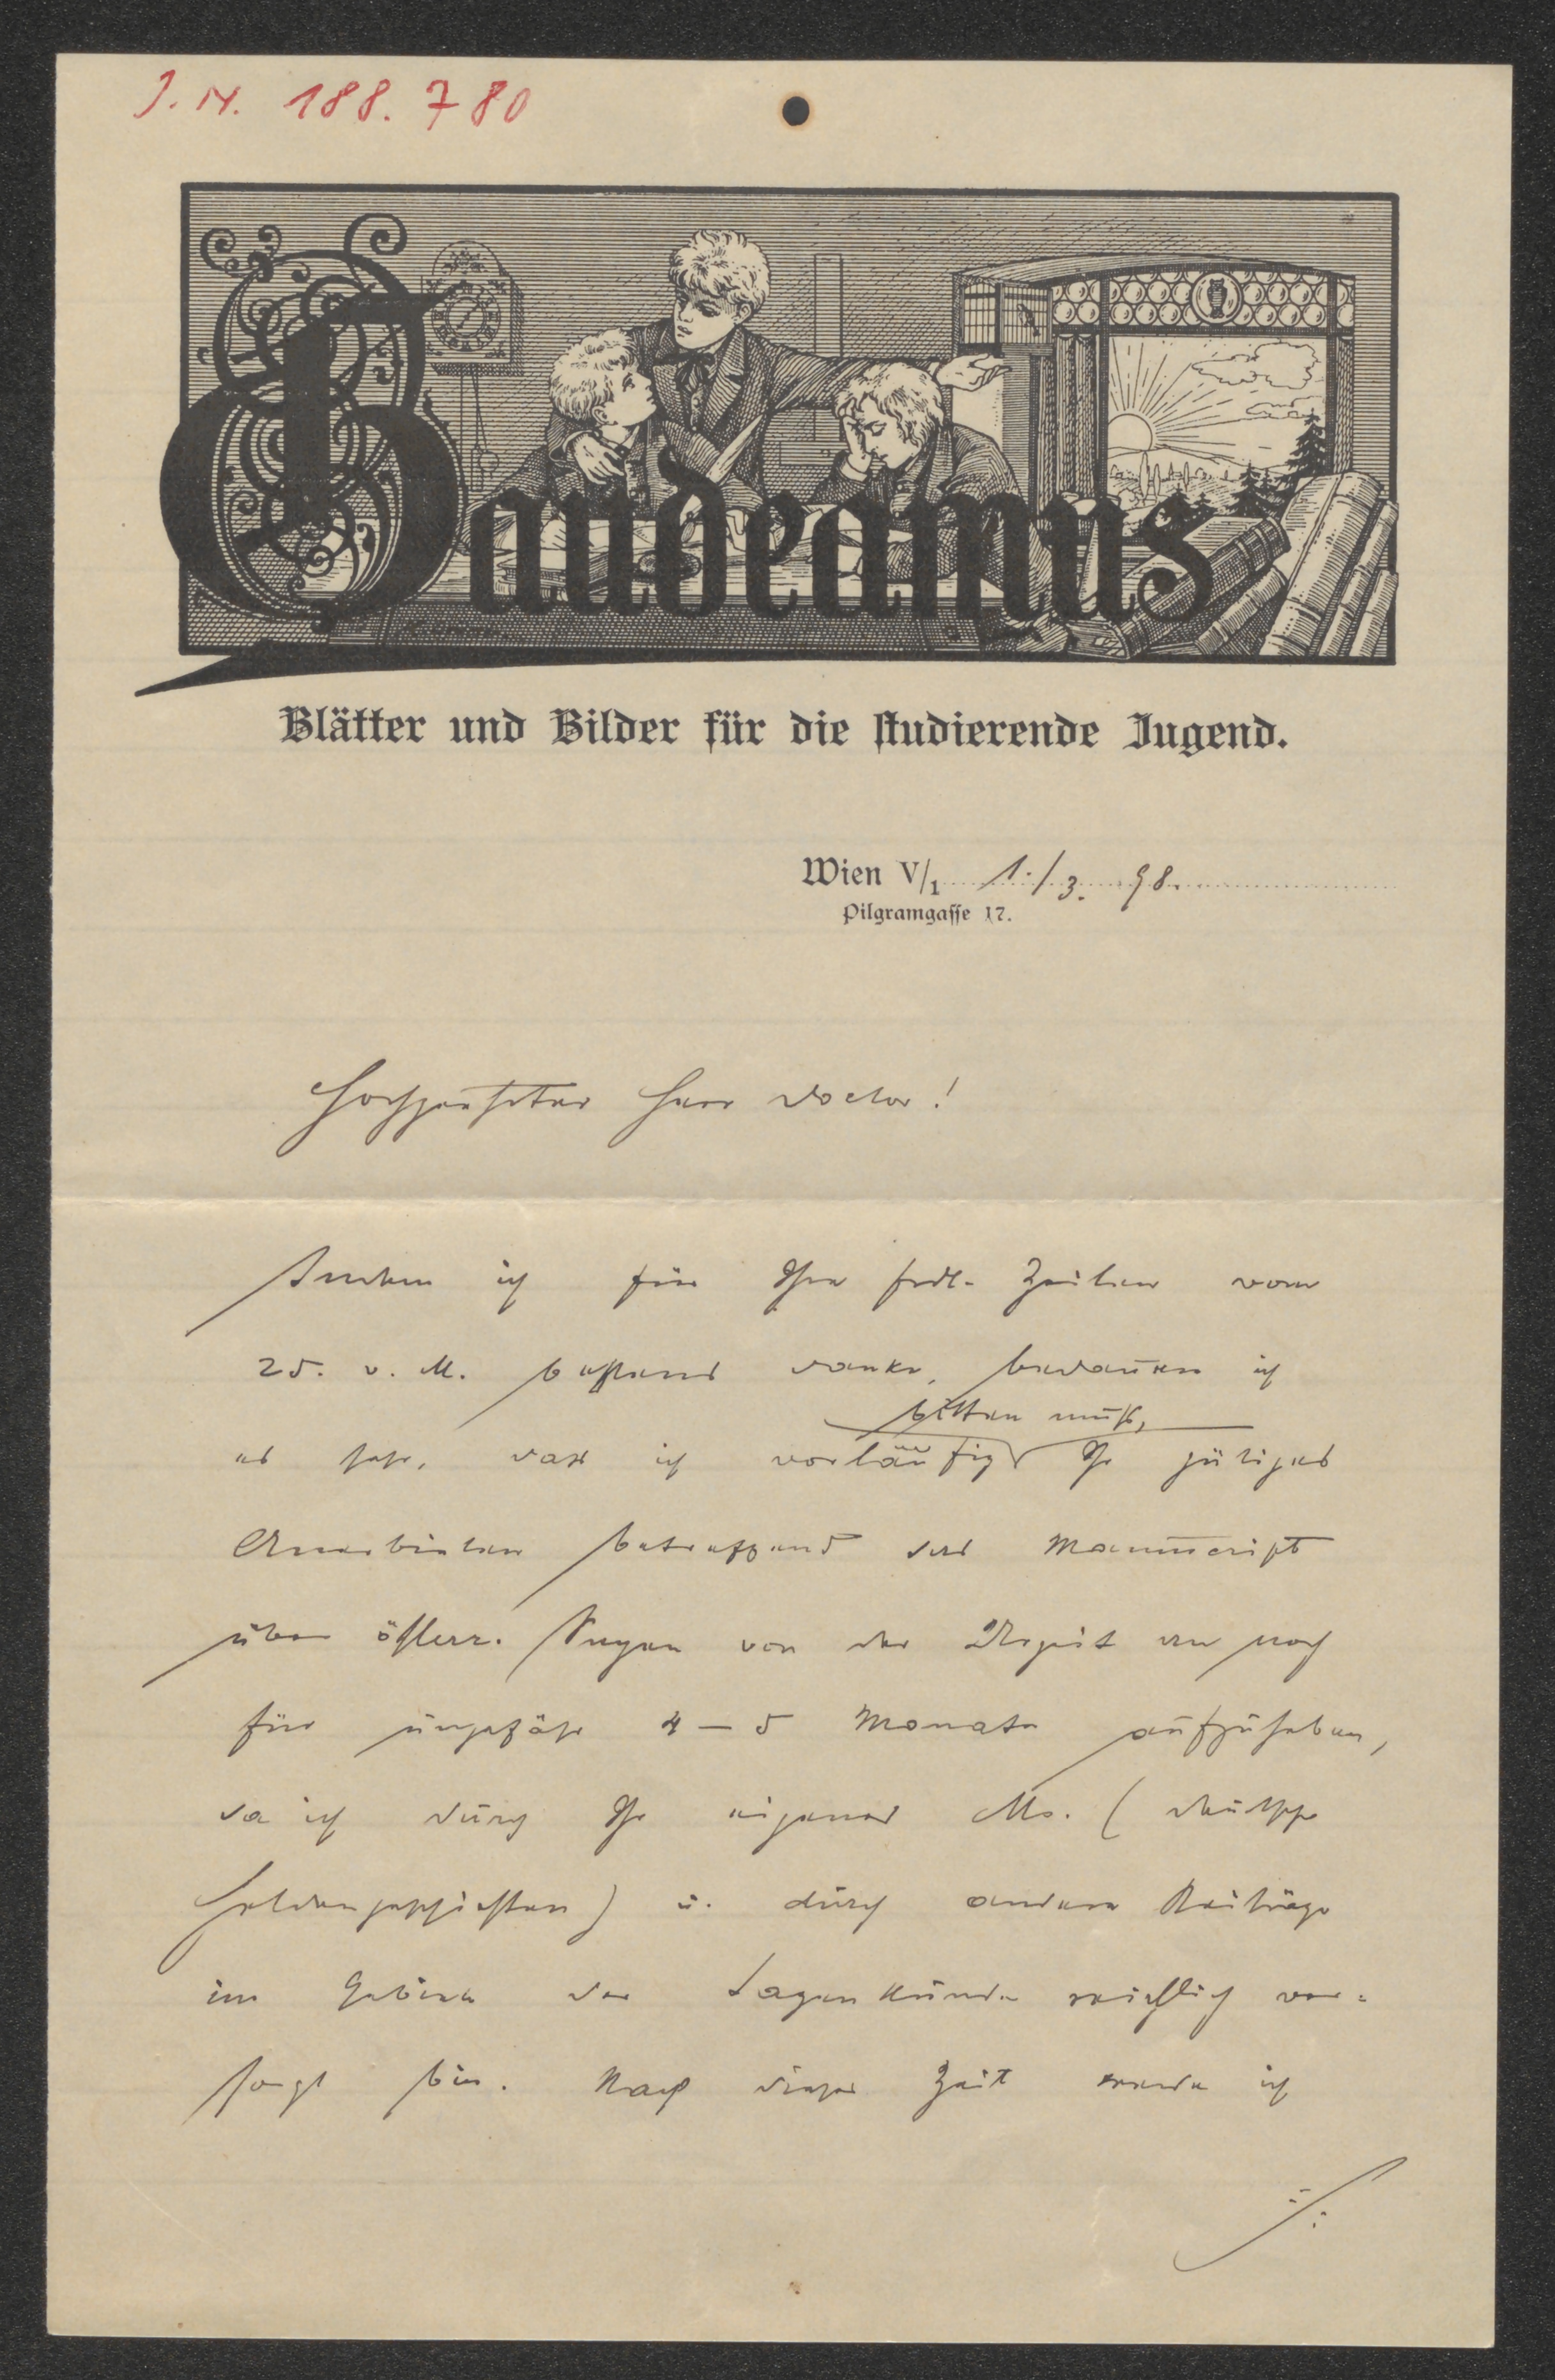 J. N. 188.780
Gaudeamus
Blätter und Bilder für die studierende Jugend.
Wien V/1 1./3. 98.
Pilgramgasse 17.
Hochgeehrter Herr Doctor!
Indem ich für Ihre frdl. Zeilen vom
25. v. M. bestens danke, bedauere ich
bitten muß,
es sehr, dass ich vorläufig Ihr gütiges
Anerbieten betreffend das Manuscript
über österr. Sagen von der
für ungefähr 4–5 Monate aufzuheben,
da ich durch Ihr eigenes Ms. (deutsche
Heldengeschichten) u. durch andere Beiträge
im Gebiete der Sagenkunde reichlich ver-
sorgt bin. Nach dieser Zeit werde ich